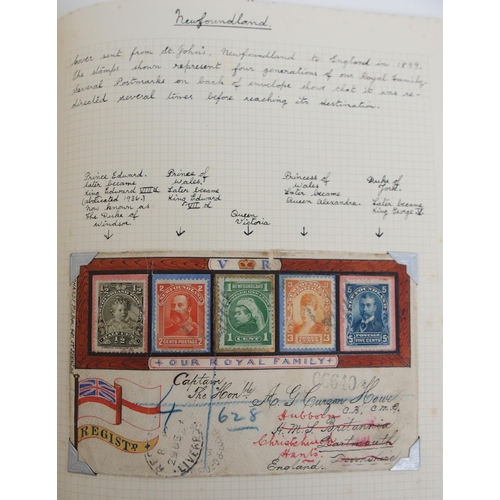 Newfoundland
Cover sent from St. John's, Newfoundland to England in 1899.
The stamps shown represent four generations of our Royal Family.
Several Postmarks on back of envelope show that it was re-
directed several times before reaching its destination.
Prince Edward.
later became
King Edward VIII d
(abdicated 1936.)
Now known as
The Duke of
Windsor
Prince of
Wales
Later became
King Edward
VII d
Queen
Victoria
Princess of
Wales
Later became
Queen Alexandra.
Duke of
York.
Later became
King George V.
V R
1/2
2 2
2 CENTS POSTAGE 2
NEWFOUNDLAND
1 1
CENT
3 3
5 5
POSTAGE
FIVE CENTS
OUR ROYAL FAMILY
Captain
The Honble A. G. Curzon Howe
C.B., C.M.G.
628
H.M.S. Britannia
Dartmouth
Devonshire
England.
Christchurch
Hants.
REGISTD
LIVERPOOL